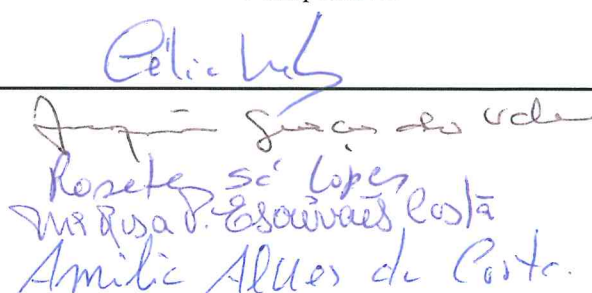 Célia
Joaquim Garcês do Vale
Rosete Sá Lopes
Mª Rosa P. Escrivães Costa
Amilia Alves da Costa.